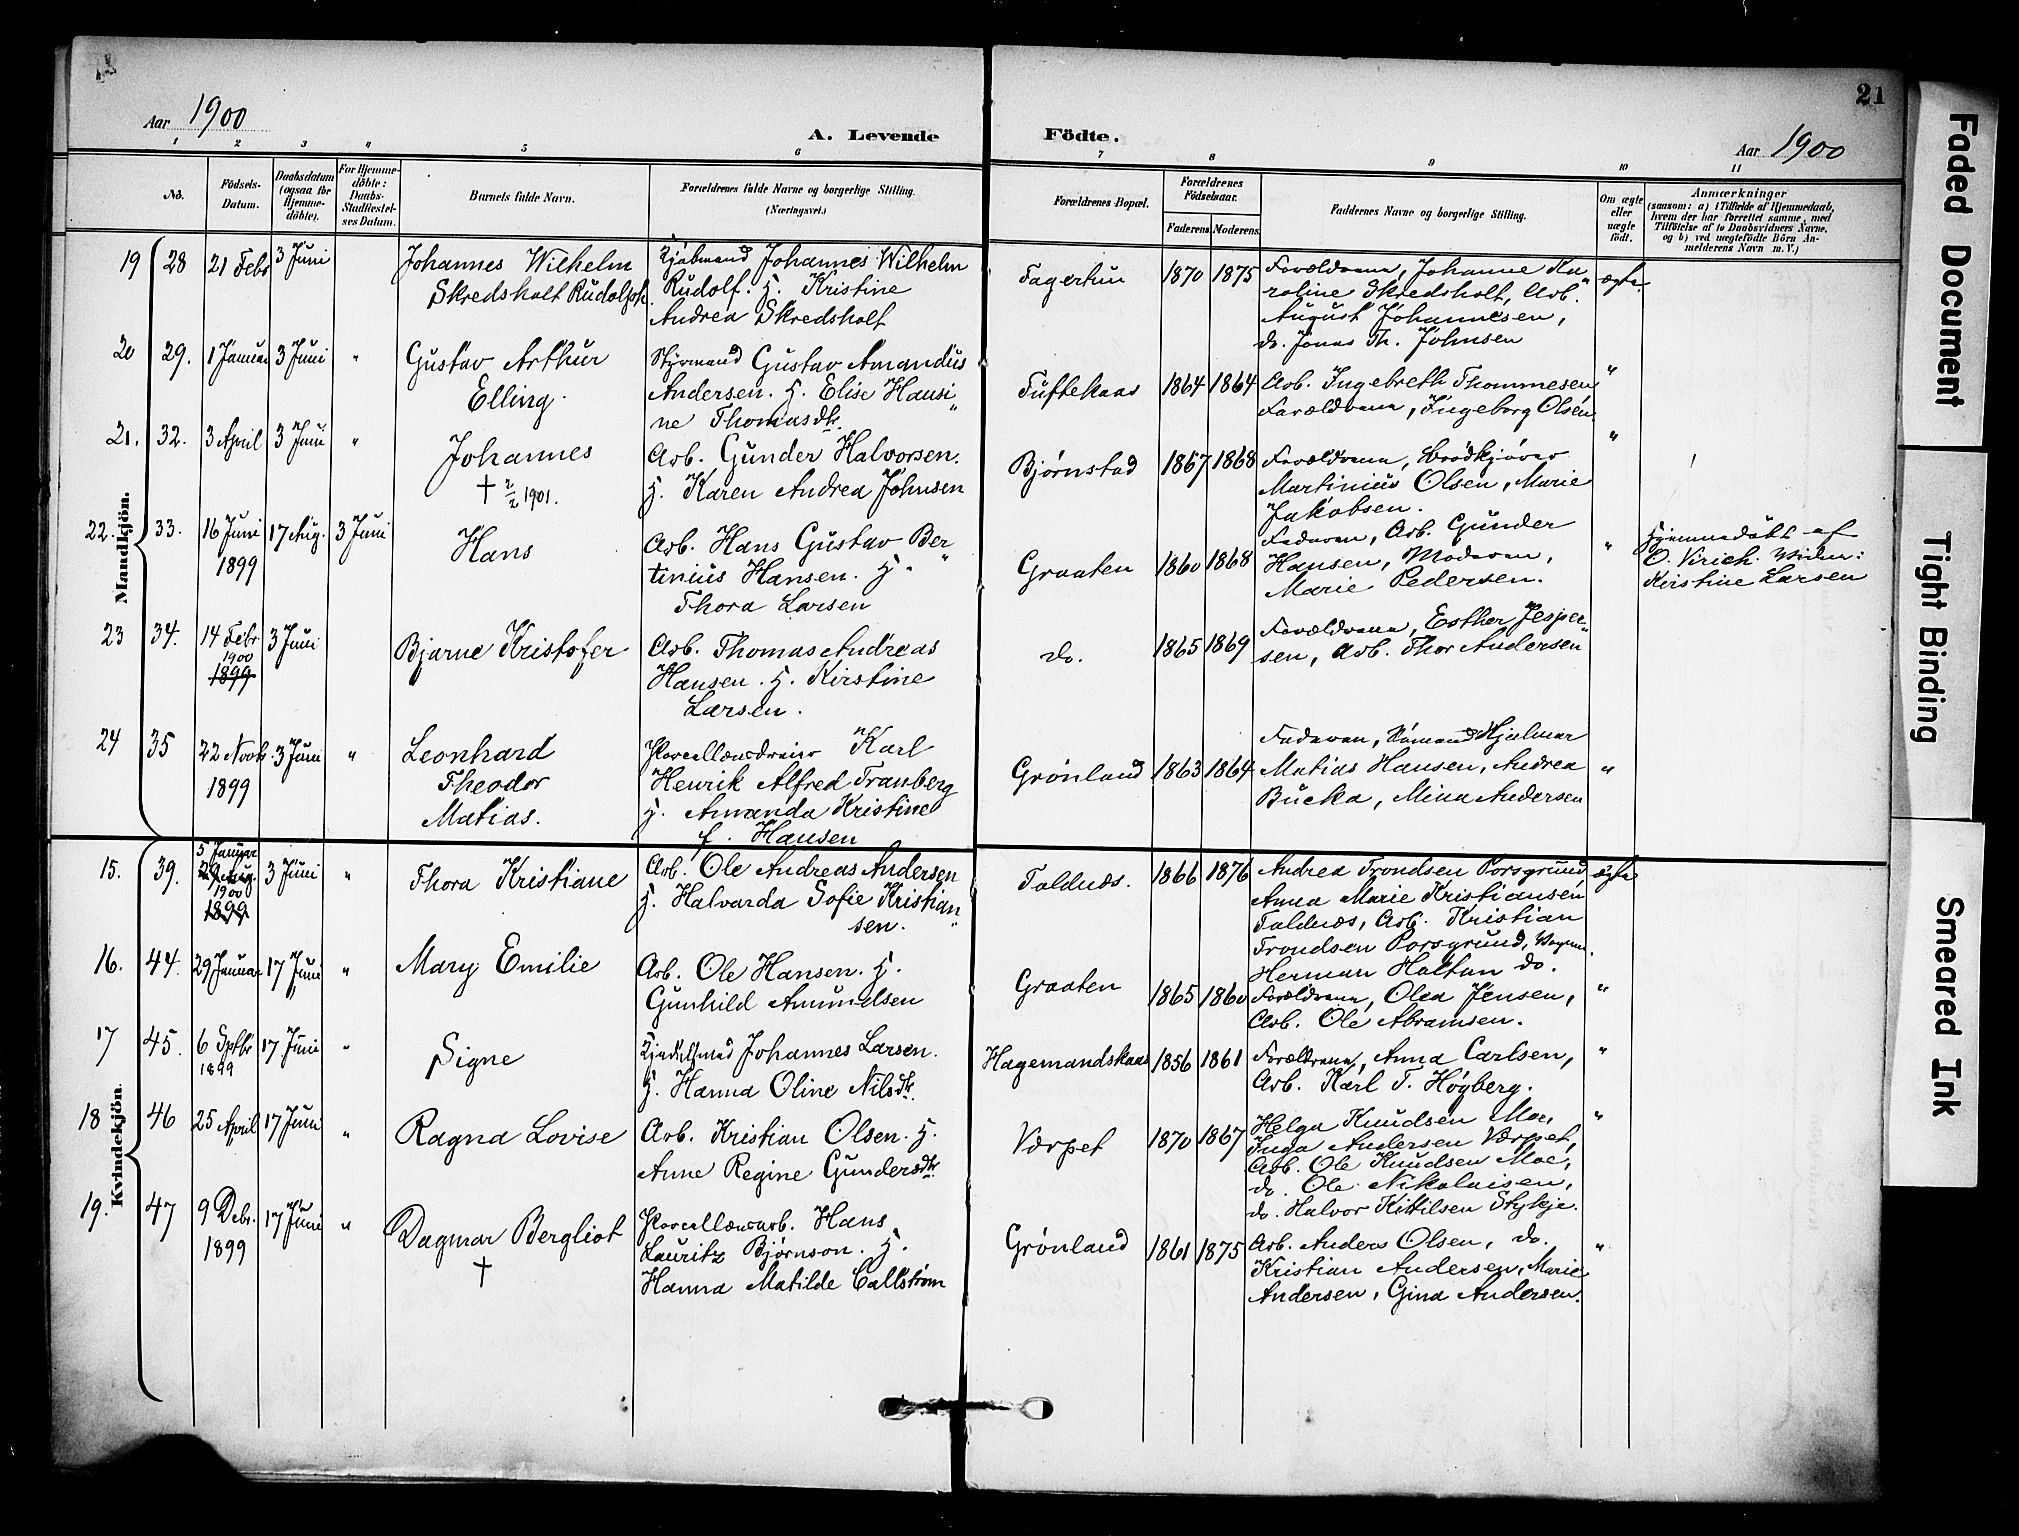 Aar 1900
A. Levende Födte.
21
Aar 1900
1 2 3 4 5 6 7 8 9 10 11
No.
Födsels-Datum.
Daabsdatum (ogsaa for Hjemme-döbte).
For Hjemme-döbte: Daabs-Stadfæstel-ses Datum.
Barnets fulde Navn.
Forældrenes fulde Navne og borgerlige Stilling. (Næringsvei.)
Forældrenes Bopæl.
Forældrenes Födselsaar.
Faderens Moderens
Faddernes Navne og borgerlige Stilling.
Om ægte eller uægte födt.
Anmærkninger
(saasom: a) i Tilfælde af Hjemmedaab,
hvem der har forrettet samme, med
Tilföielse af to Daabsvidners Navne,
og b) ved uægtefödte Börn An-
melderens Navn m. V.)
Mandkjön.
19 28 21 Febr 3 Juni
Johannes Wilhelm
Skredsholt Rudolph
Kjøbmand Johannes Wilhelm
Rudolf. H. Kristine
Andrea Skredsholt
Fagertun 1870 1875
Forældrene, Johanne Ka-
roline Skredsholt, Arb.
August Johannesen,
do. Jonas Th. Johnsen
ægte.
20 29. 1 Januar 3 Juni "
Gustav Arthur
Elling.
Styrmand Gustav Amandus
Andersen. H. Elise Hansi
ne Thomasdtr.
Tuftekaas 1864 1864
Arb. Ingebreth Thommesen
Forældrene, Ingeborg Olsen
"
21. 32. 3 April 3 Juni "
Johannes
† 2/2 1901.
Arb. Gunder Halvorsen.
H. Karen Andrea Johnsen
Bjørnstad 1867 1868
Forældrene, Brødkjører
Martinius Olsen, Marie
Jakobsen.
"
22. 33. 16 Juni 1899 17 Aug. 3 Juni
Hans
Arb. Hans Gustav Ber
tinius Hansen. H.
Thora Larsen
Graaten 1860 1868
Faderen, Arb. Gunder
Hansen, Moderen,
Marie Pedersen.
"
Hjemmedøbt af
O. Virich. Vidn:
Kirstine Larsen
23 34. 14 Febr 1900 1899 3 Juni
Bjarne Kristofer
Arb. Thomas Andreas
Hansen. H. Kirstine
Larsen.
do. 1865 1869
Forældrene, Esther Jesper-
sen, Arb. Thor Andersen
24 35 22 Novb. 1899 3 Juni "
Leonhard
Theodor
Matias.
Porcellænsdreier Karl
Henrik Alfred Tranberg
H. Amanda Kristine
f. Hansen
Grønland 1863 1864
Faderen, Sømand Hjalmar
Matias Hansen, Andrea
Bucka, Mina Andersen
"
Kvindekjön.
15. 39. 5 Januar 29 Aug. 1900 1899 3 Juni "
Thora Kristiane
Arb. Ole Andreas Andersen
H. Halvarda Sofie Kristian
sen.
Toldnæs. 1866 1876
Andrea Trondsen Porsgrund
Anna Marie Kristiansen
Toldnæs, Arb. Kristian
Trondsen Porsgrund,
Herman Holtan do.
ægte
16. 44. 29 Januar 17 Juni "
Mary Emilie
Arb. Ole Hansen. H.
Gunhild Amundsen
Graaten 1865 1860
Forældrene, Olea Jensen,
Arb. Ole Abramsen.
"
17 45. 6 Sptbr 1899 17 Juni "
Signe
Johannes Larsen.
H. Hanna Oline Nilsdtr.
Hagemandskaas 1856 1861
Forældrene, Anna Carlsen,
Arb. Karl T. Høgberg.
"
18 46 25 April 17 Juni "
Ragna Lovise
Arb. Kristian Olsen. H.
Anne Regine Gundersdtr.
Værpet 1870 1867
Helga Knudsen Moe,
Inga Andersen Værpet,
Arb. Ole Knudsen Moe,
do. Ole Nikolaisen,
do. Halvor Kittilsen Stykje.
"
19. 47 9 Debr. 1899 17 Juni "
Dagmar Bergliot
†
Porcellænsarb. Hans
Lauritz Bjørnson. H.
Hanna Matilde Callstrøm
Grønland 1861 1875
Arb. Anders Olsen, do.
Kristian Andersen, Marie
Andersen, Gina Andersen.
"
Faded Document
Tight Binding
Smeared Ink